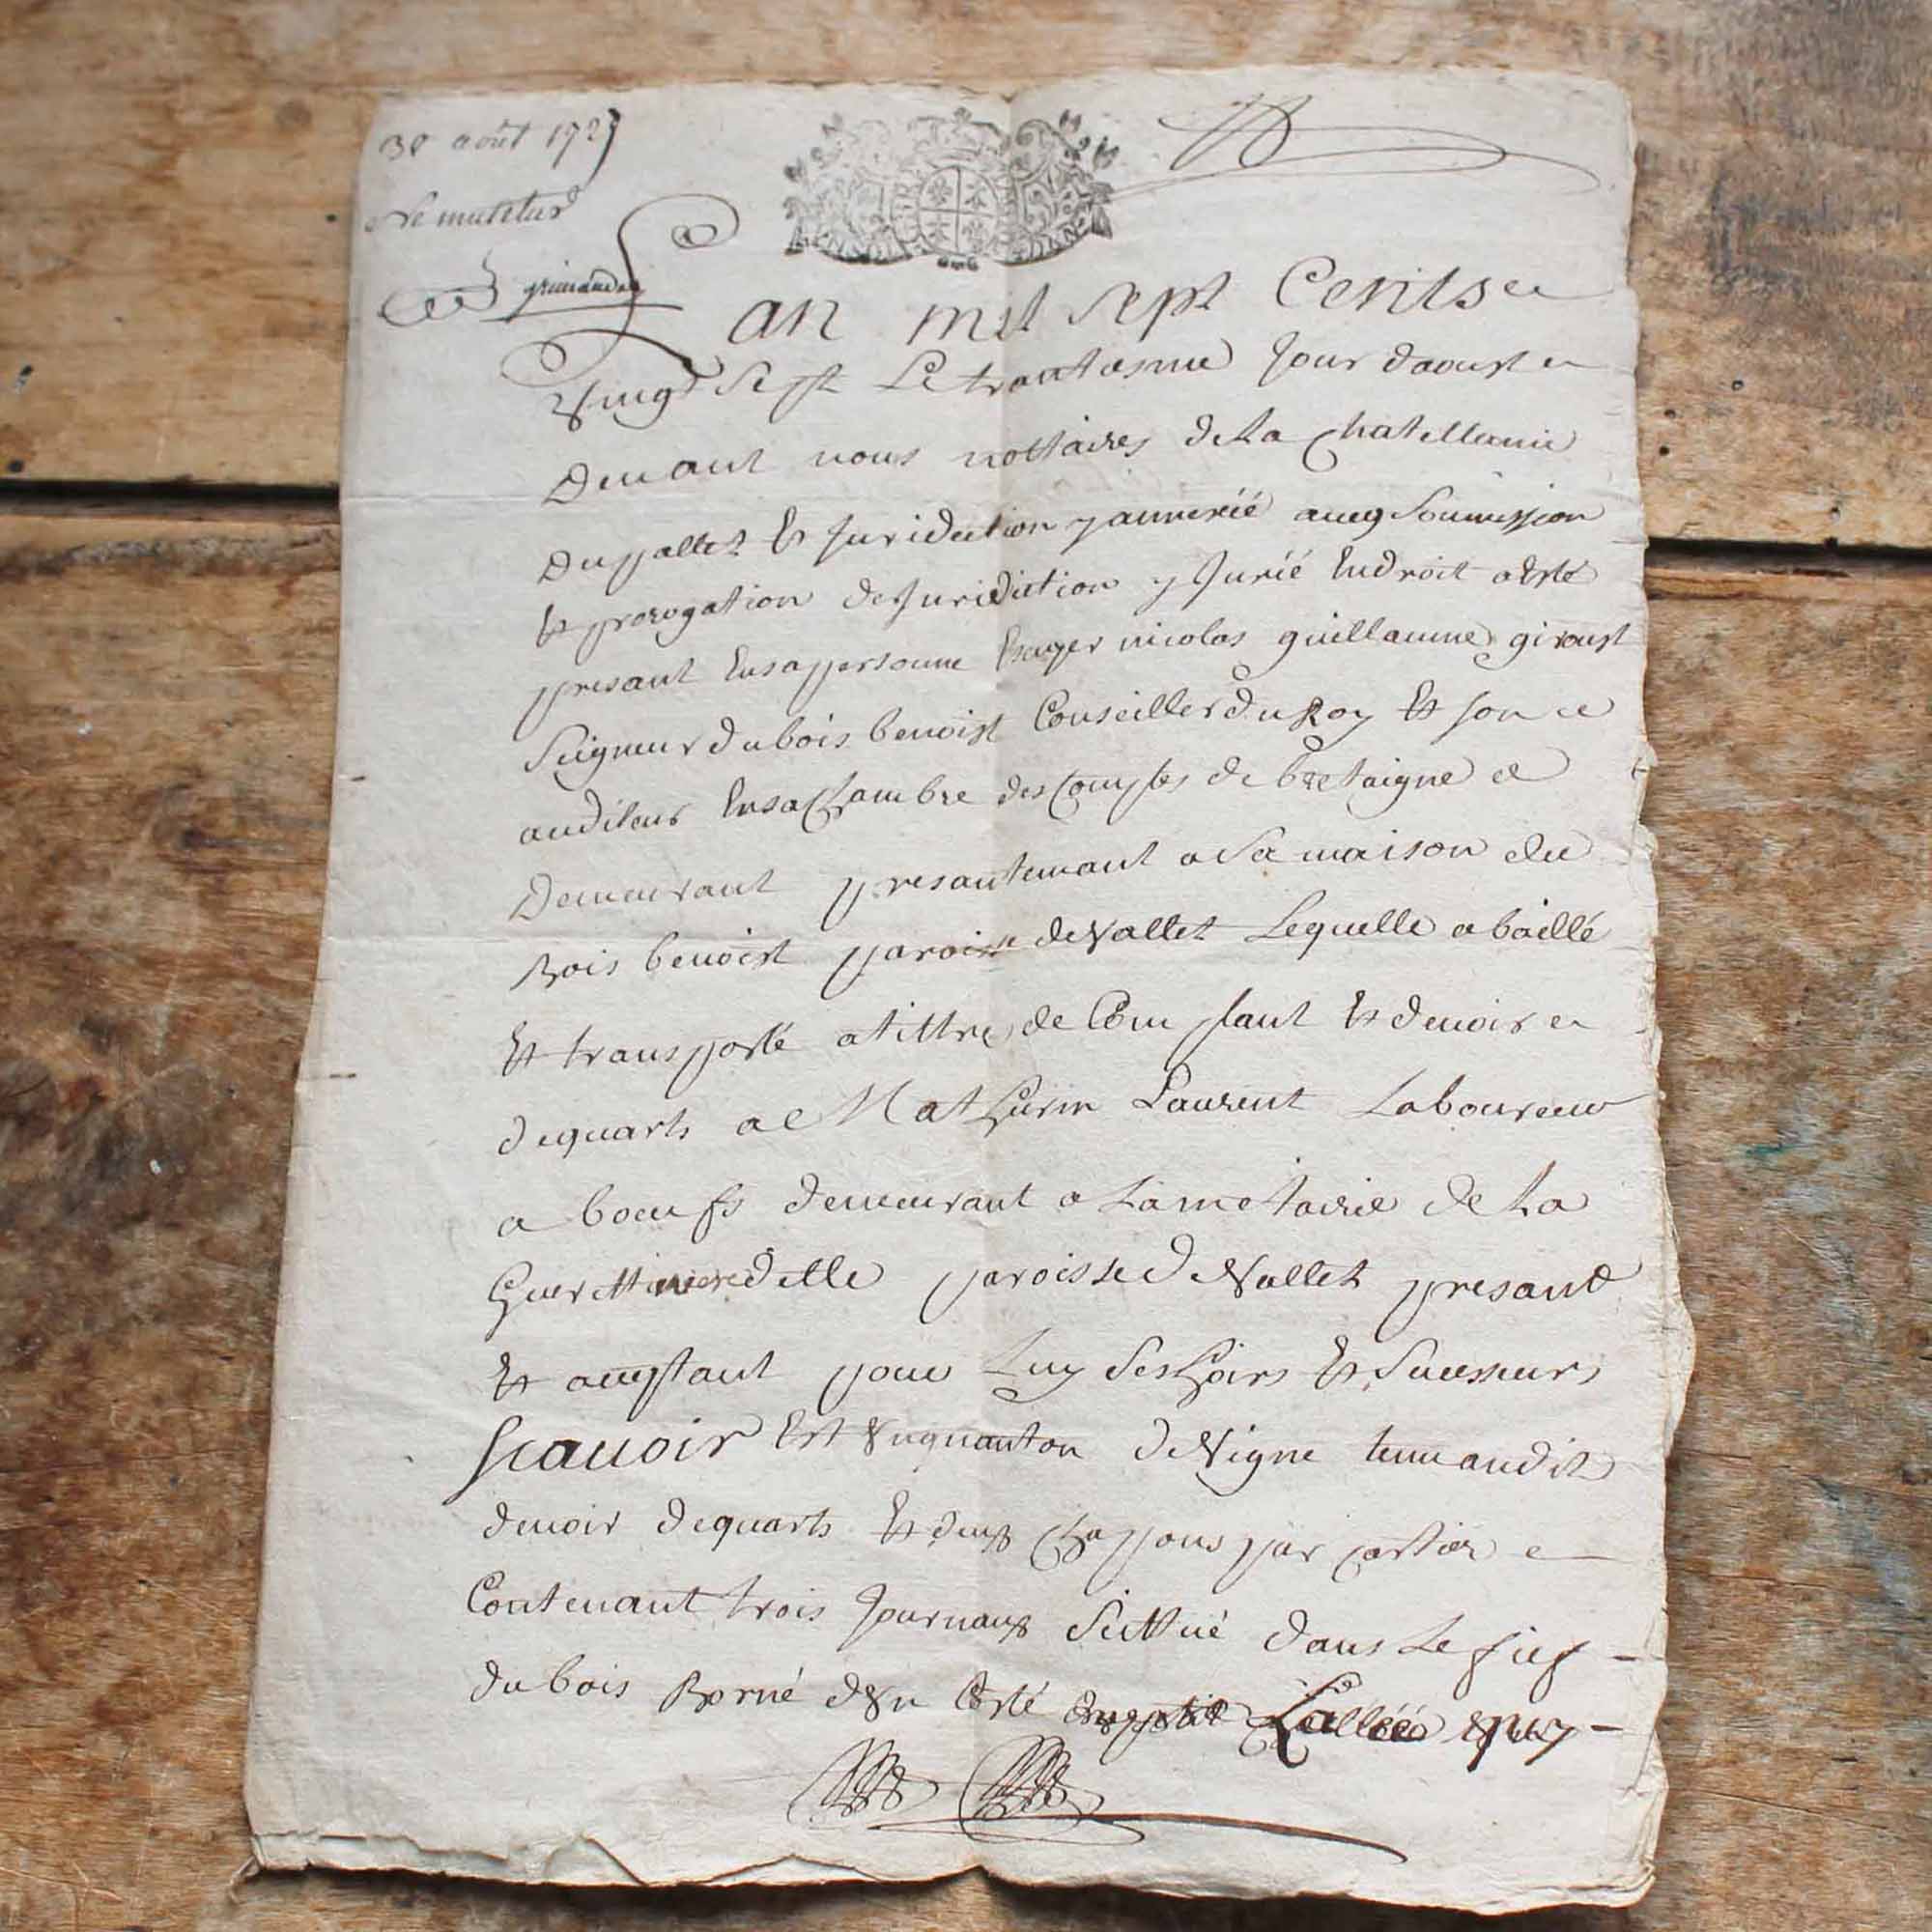 30 août 1727
Ne mutetur
L'an mil sept Cents
Vingt Sept Le trantiesme Jour daoust
Devant nous nottaires de La Chatellanie
Du pallet Et Juridiction avecq Soumission
Et prorogation de Juridiction y Jurée Endroit a Esté
presant En sa personne Escuyer nicolas guillaume giroust
Seigneur du bois benoist Conseiller du Roy Et son
auditeur En sa Chambre des Comptes de bretaigne
Demeurant presantemant a Sa maison du
Bois benoist paroisse de Vallet Lequelle a baillé
Et transporté a tittre de Complant Et devoir
de quarts a Mathurin Laurent Laboureur
a boeufs demeurant a La metairie de La
ditte paroisse de Vallet presant
Et acceptant pour Luy Ses hoirs Et Successeurs
Scavoir Est Un quanton de Vigne tenu audit
devoir de quarts Et deux Chappons par cartier
Contenant trois Journaux Sittué dans Le fief
du bois Borné d'Un Costé